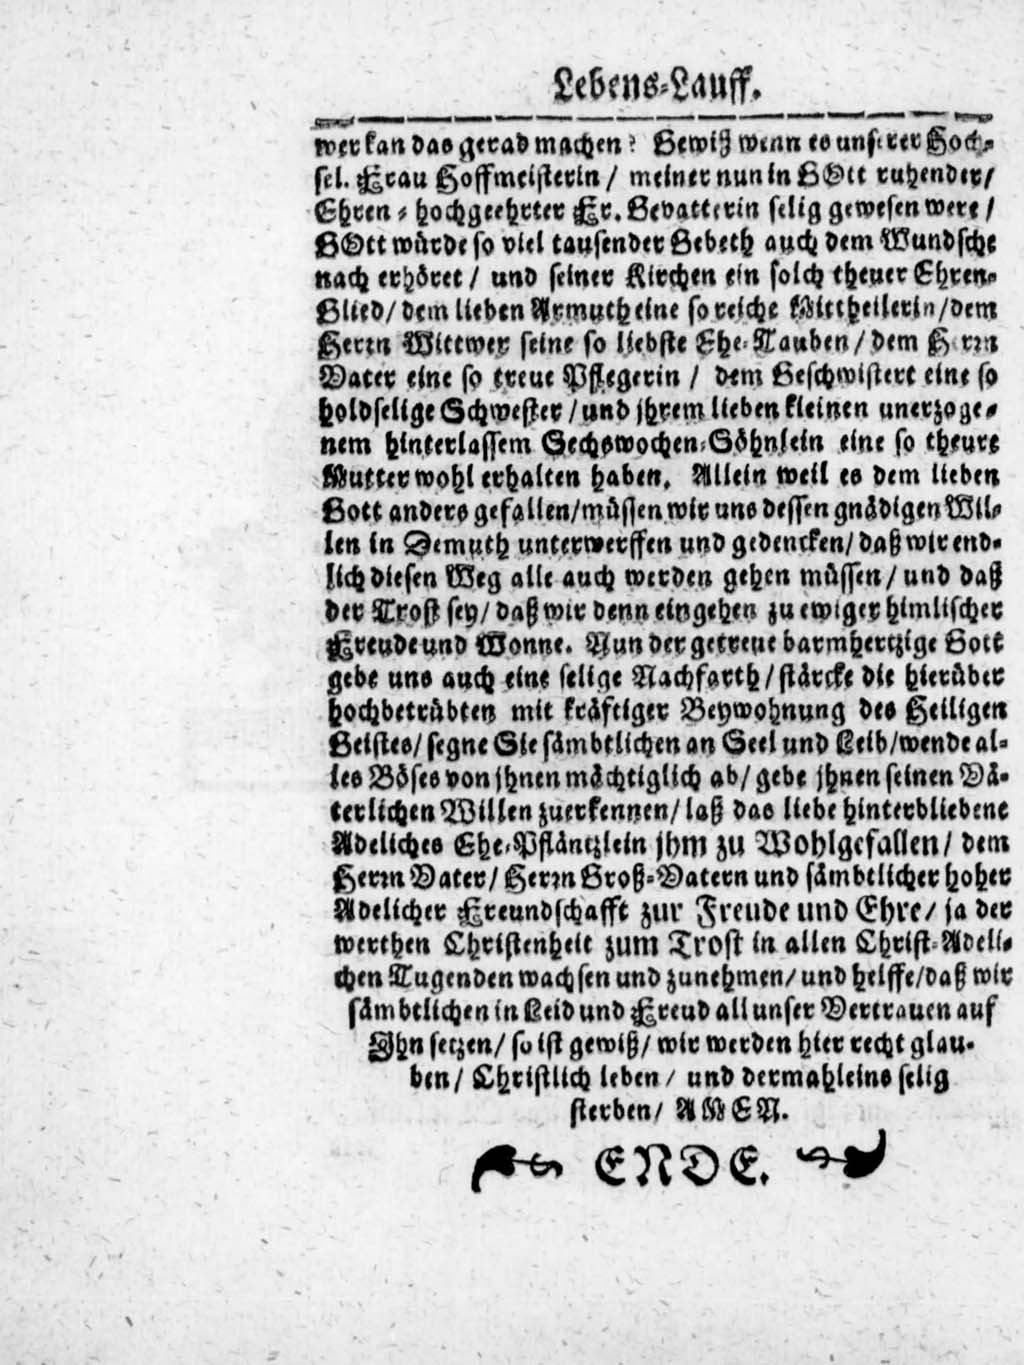 Lebens-Lauff.
wer kan das gerad machen? Gewiß wenn es unserer Hoch-
sel. Frau Hoffmeisterin / meiner nun in GOtt ruhender/
Ehren-hochgeehrter Fr. Gevatterin selig gewesen were /
GOtt würde so viel tausender Gebeth auch dem Wundsche
nach erhöret / und seiner Kirchen ein solch theuer Ehren-
Glied/ dem lieben Armuth eine so reiche Mittheilerin/dem
Herrn Wittwer seine so liebste Ehe-Tauben / dem Herrn
Vater eine so treue Pflegerin / dem Geschwistert eine so
holdselige Schwester / und jhrem lieben kleinen unerzoge-
nem hinterlassem Sechswochen-Söhnlein eine so theure
Mutter wohl erhalten haben. Allein weil es dem lieben
Gott anders gefallen/müssen wir uns dessen gnädigen Wil-
len in Demuth unterwerffen und gedencken/ daß wir end-
lich diesen Weg alle auch werden gehen müssen / und daß
der Trost sey/ daß wir denn eingehen zu ewiger himlischer
Freude und Wonne. Nun der getreue barmhertzige Gott
gebe uns auch eine selige Nachfarth / stärcke die hierüber
hochbetrübten mit kräftiger Beywohnung des Heiligen
Geistes/ segne Sie sämbtlichen an Seel und Leib/wende al-
les Böses von jhnen mächtiglich ab/ gebe jhnen seinen Vä-
terlichen Willen zuerkennen/ laß das liebe hinterbliebene
Adeliches Ehe-Pfläntzlein jhm zu Wohlgefallen/ dem
Herrn Vater/ Herrn Groß-Vatern und sämbtlicher hoher
Adelicher Freundschafft zur Freude und Ehre/ ja der
werthen Christenheit zum Trost in allen Christ-Adeli-
chen Tugenden wachsen und zunehmen/ und helffe/daß wir
sämbtlichen in Leid und Freud all unser Vertrauen auf
Jhn setzen/ so ist gewiß/ wir werden hier recht glau-
ben/ Christlich leben/ und dermahleins selig
sterben/ AMEN.
ENDE.